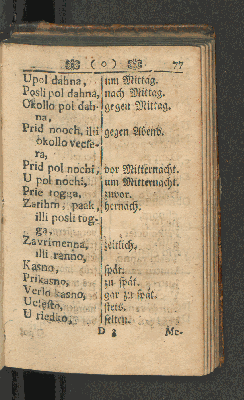 ( o ) 77
Upol dahna, um Mittag.
Posli pol dahna, nach Mittag.
Okollo pol dah- gegen Mittag.
na,
Prid nooch, illi gegen Abend.
okollo vecse-
ra,
Prid pol nochi, vor Mitternacht.
U pol nochi, um Mitternacht.
Prie togga, zuvor.
Zatihm, pack, hernach.
illi posli tog-
ga,
Zavrimenna, zeitlich.
illi ranno,
Kasno, spät.
Prikasno, zu spät.
Verlo kasno, gar zu spät.
Ucsesto, stets.
U riedko, selten.
D 3 Me-